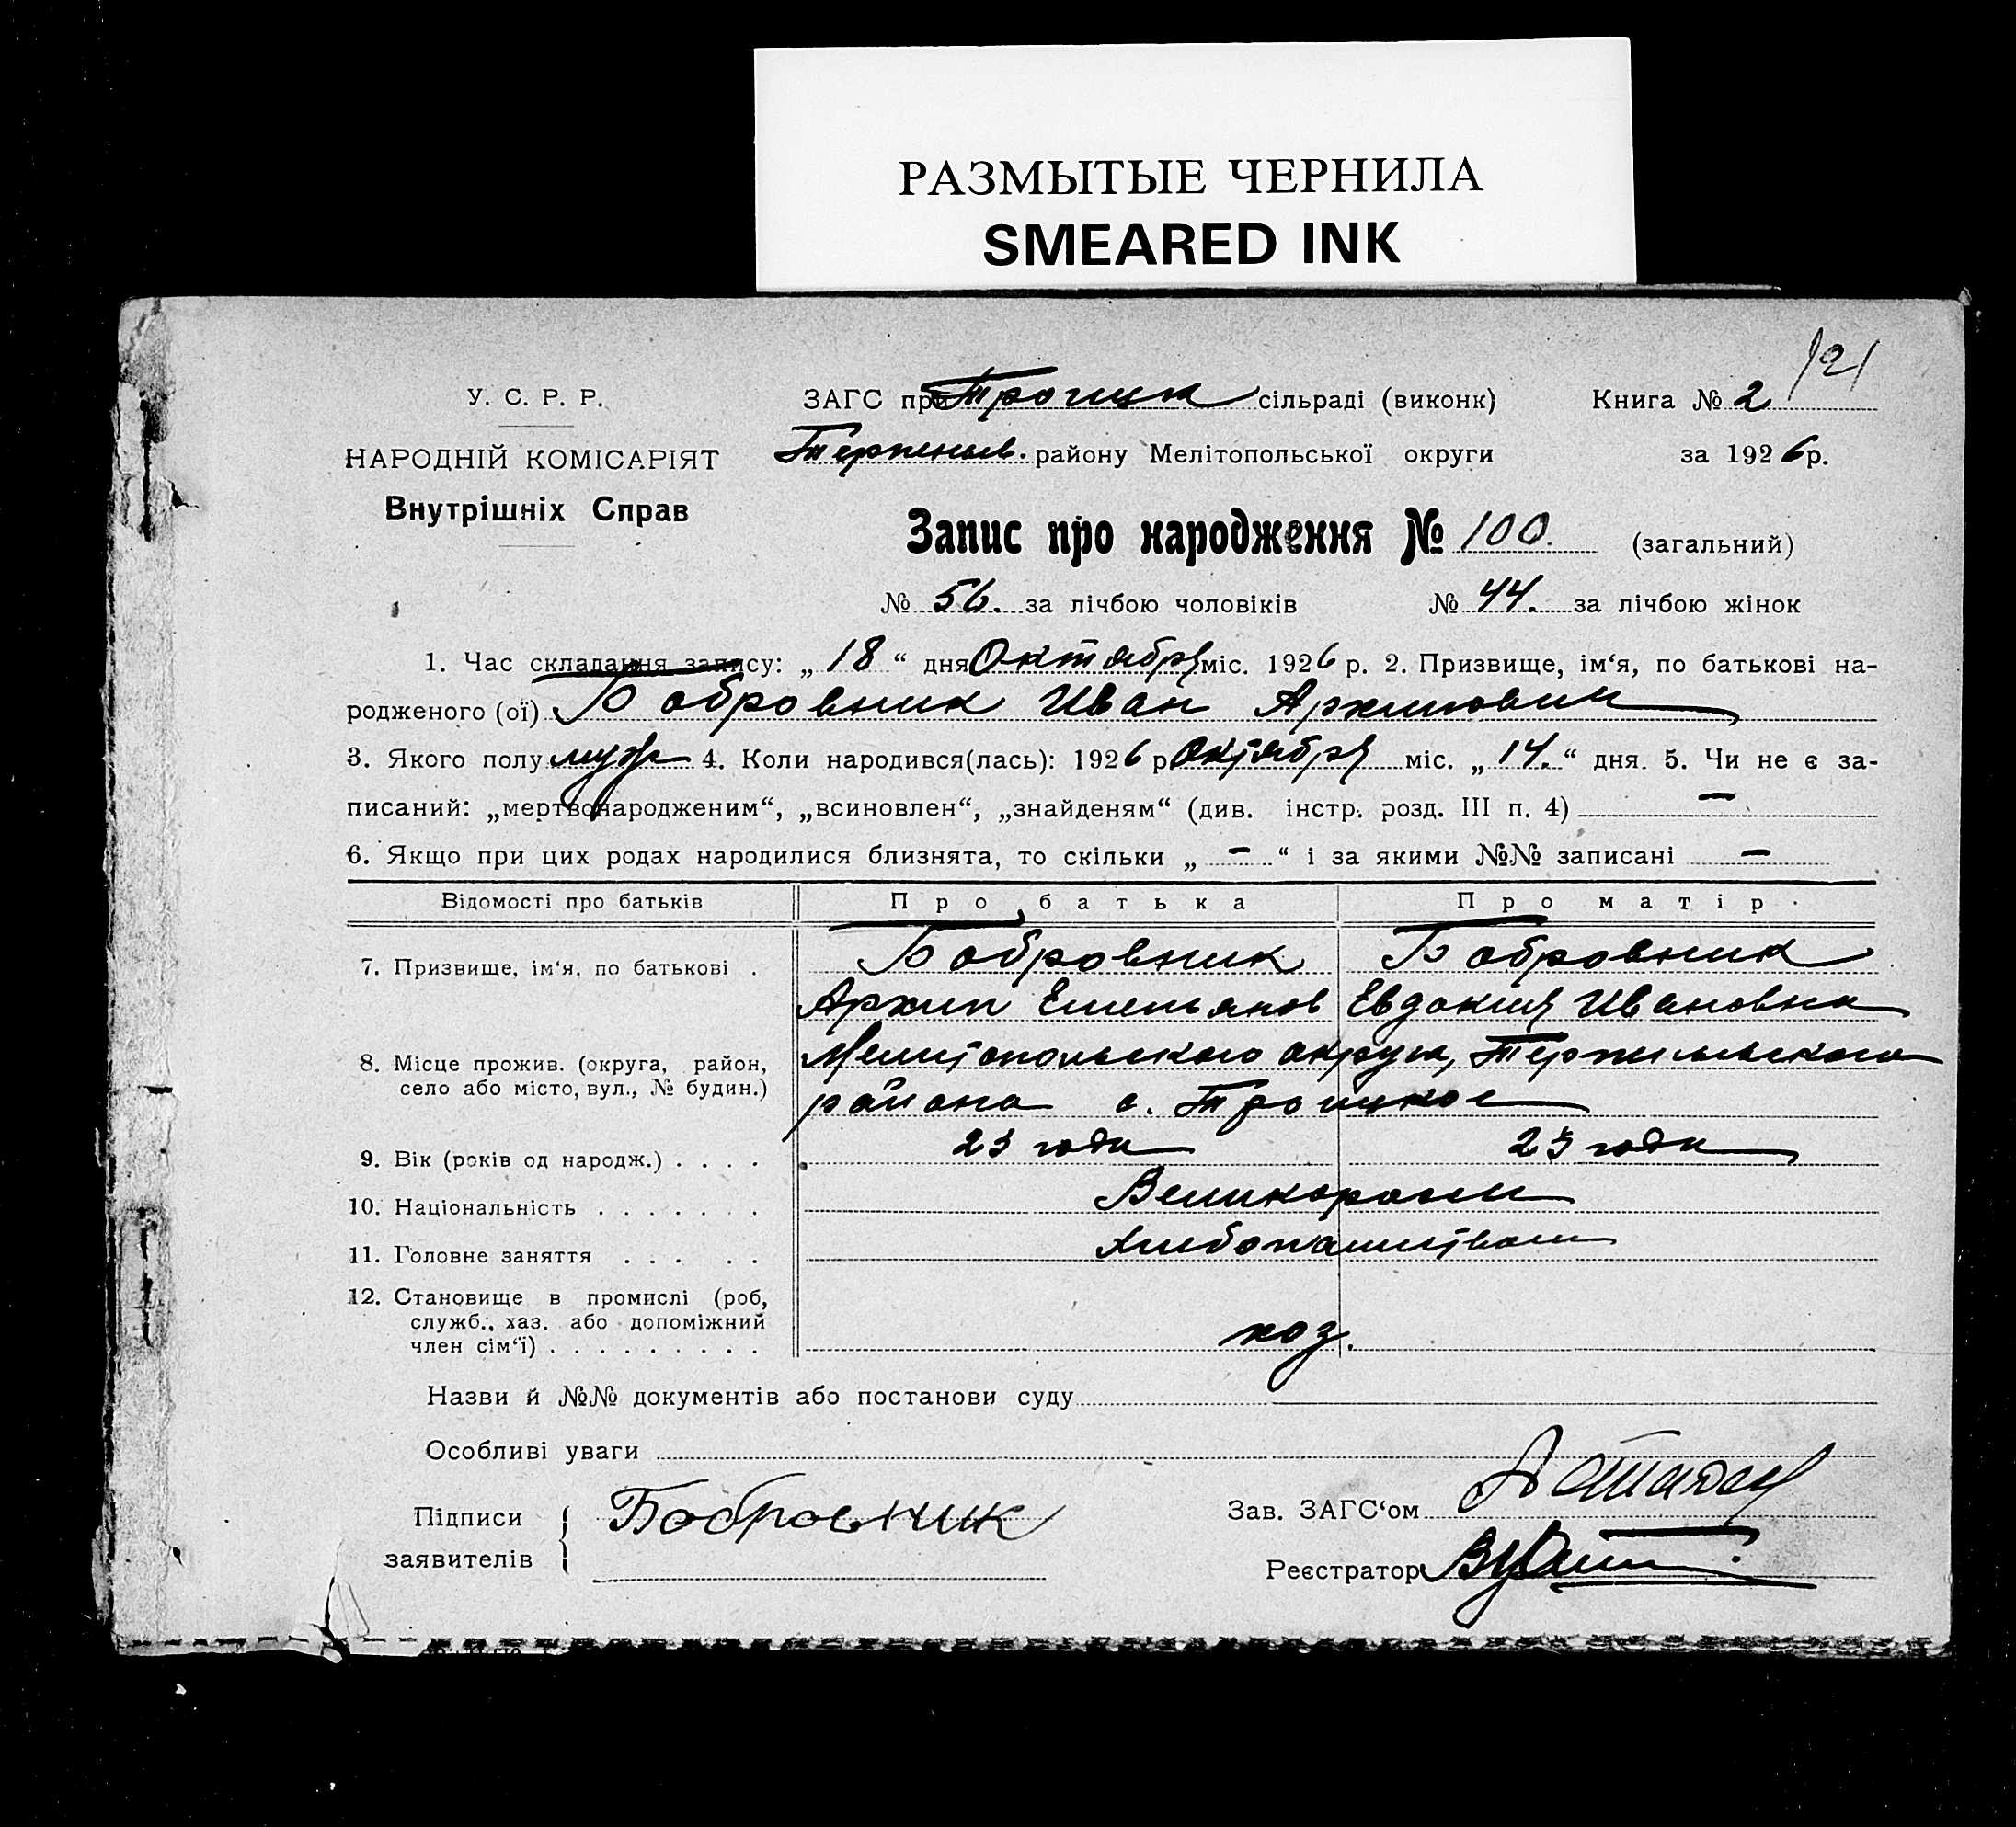 РАЗМЫТЫЕ ЧЕРНИЛА
SMEARED INK
121
У. С. Р. Р.
НАРОДНІЙ КОМІСАРІЯТ
Внутрішніх Справ
ЗАГС при Троицк сільраді (виконк)
Книга № 2
Терпеньев. району Мелітопольської округи
за 1926 р.
Запис про народження № 100. (загальний)
№ 56. за лічбою чоловіків № 44. за лічбою жінок
1. Час складання запису: „18“ дня Октября міс. 1926 р. 2. Призвище, ім‘я, по батькові на-
родженого (ої) Бобровник Иван Архипович
3. Якого полу муж 4. Коли народився(лась): 1926 р Октября міс. „14.“ дня. 5. Чи не є за-
писаний: „мертвонародженим“, „всиновлен“, „знайденям“ (див. інстр. розд. III п. 4) —
6. Якщо при цих родах народилися близнята, то скільки „ - “ і за якими №№ записані —
Відомості про батьків Про батька Про матір
7. Призвище, ім‘я, по батькові . Бобровник Бобровник
Архип Емельянов Евдокия Ивановна
8. Місце прожив. (округа, район,
село або місто, вул., № будин.)
Мелитопольского округа, Терпеньевского
района с. Троицкое
9. Вік (років од народж.) . . . . 23 года 23 года
10. Національність . . . . . . . Великороссы
11. Головне заняття . . . . . Хлебопашеством
12. Становище в промислі (роб,
служб., хаз. або допоміжний
член сім‘ї) . . . . . . . . . хоз.
Назви й №№ документів або постанови суду
Особливі уваги
Підписи
заявителів
Бобровник
Зав. ЗАГС‘ом
Реєстратор